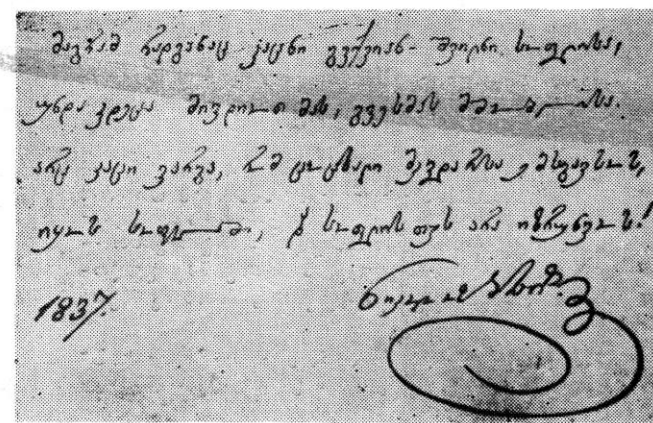 მაგრამ რადგანაც კაცნი გვქვიან- შვილნი სოფლისა,
უნდა კიდეცა მივდიოთ მას, გვესმას მშობლისა.
არც კაცი ვარგა, რომ ცოცხალი მკვდარსა ემსგავსოს,
იყოს სოფელში, და სოფლის თვს არა იზრუნვოს!
1837.